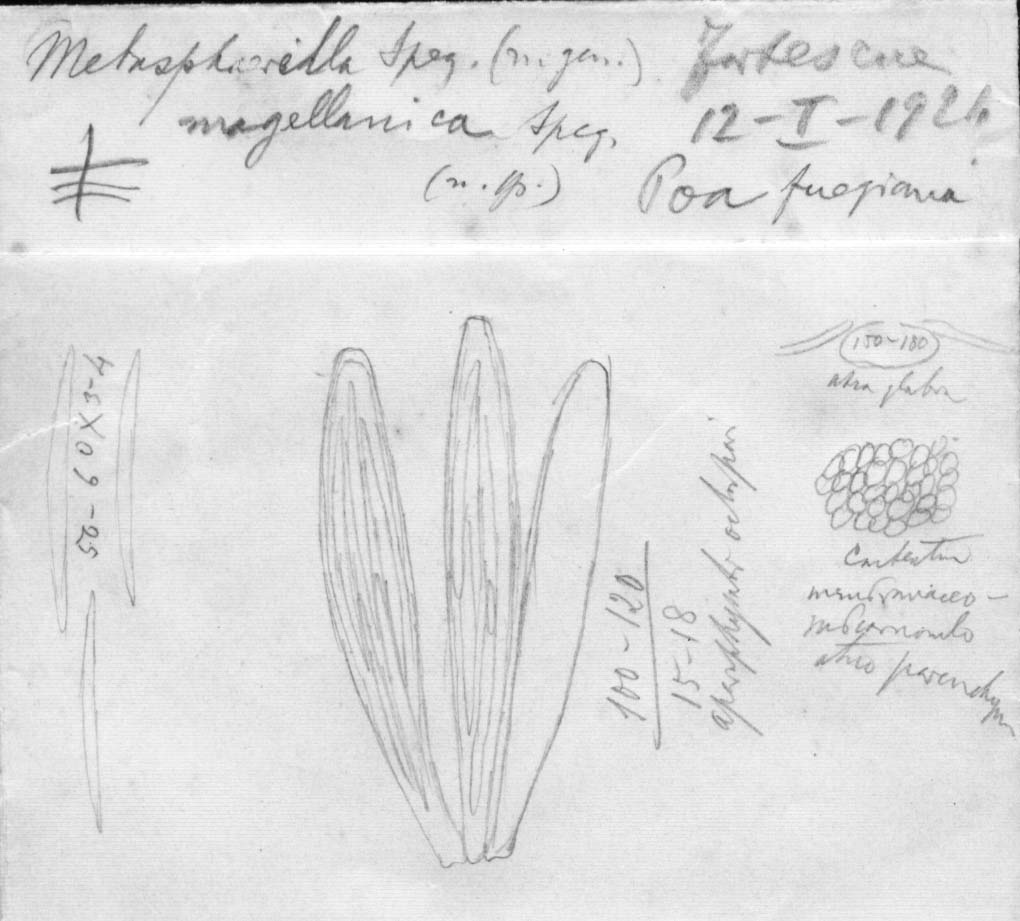 Metasphaerella Speg. (n. gen.)
magellanica Speg.
(n. sp.)
Fortescue
12-I-1924
Poa fuegiana
50-60X3-4
100-120
15-18
aparaphysati octospori
150-180
atra glabra
Contextu
membranaceo-
subcarnosulo
atro parenchym